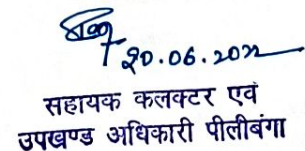 20.06.2022
सहायक कलक्टर एवं
उपखण्ड अधिकारी पीलीबंगा